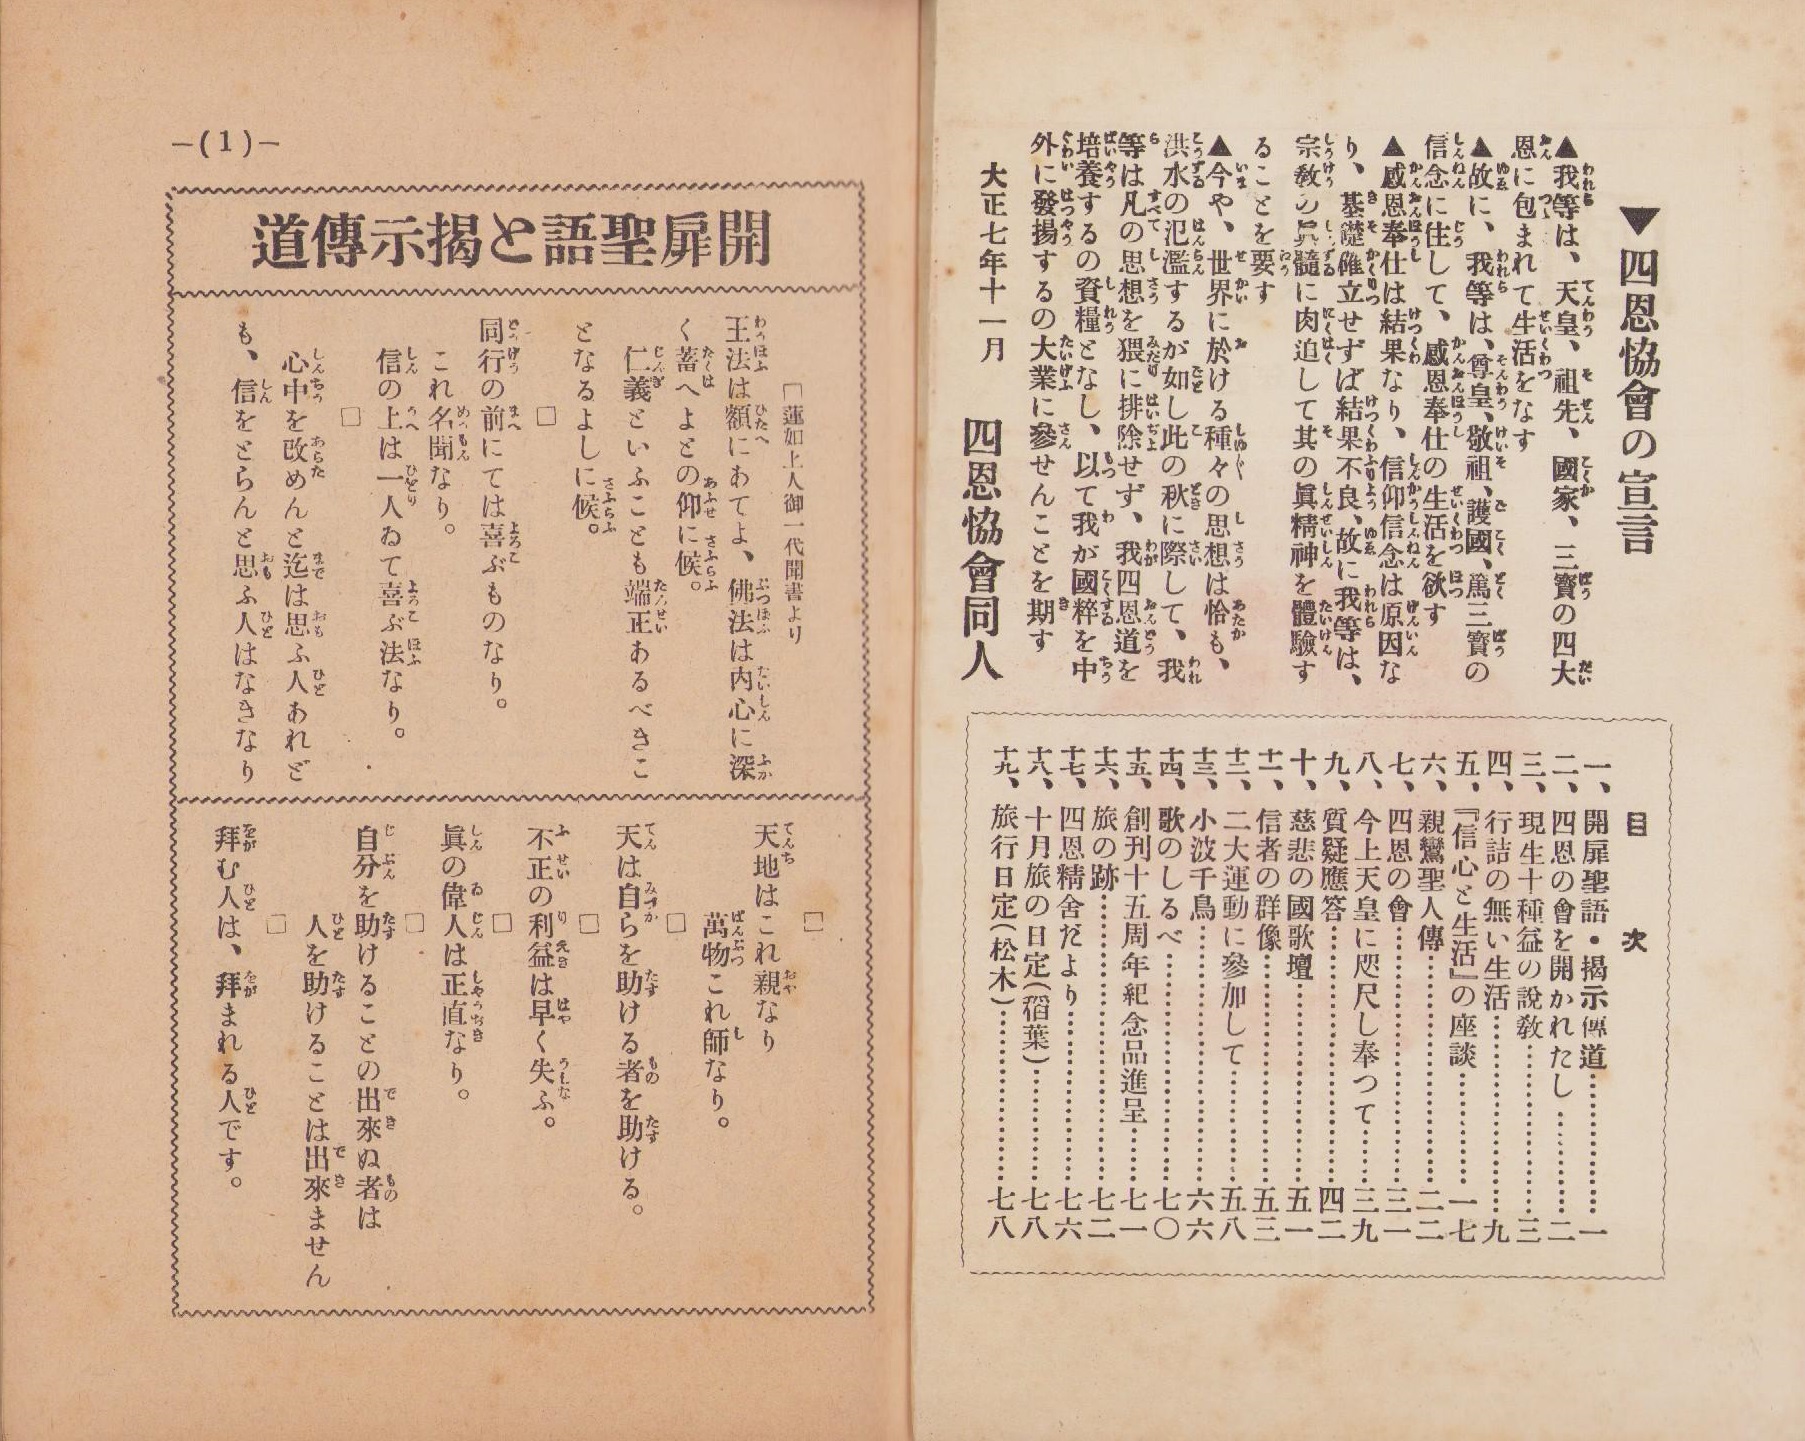 ▼四恩恊會の宣言
▲我等は、天皇、祖先、國家、三寶の四大
恩に包まれて生活をなす
▲故に、我等は、尊皇、敬祖、護國、篤三寶の
信念に住して、感恩奉仕の生活を欲す
▲感恩奉仕は結果なり、信仰信念は原因な
り、基礎確立せずば結果不良、故に我等は、
宗教の眞髓に肉迫して其の眞精神を體驗す
ることを要す
▲今や、世界に於ける種々の思想は恰も、
洪水の氾濫するが如し此の秋に際して、我
等は凡の思想を猥に排除せず、我四恩道を
培養するの資糧となし、以て我が國粹を中
外に發揚するの大業に參せんことを期す
大正七年十一月
四恩恊會同人
目次
一、開扉聖語・揭示傳道…………一
二、四恩の會を開かれたし…………二
三、現生十種益の說敎…………三
四、行詰の無い生活…………九
五、『信心と生活』の座談…………一七
六、親鸞聖人傳…………二二
七、四恩の會…………三一
八、今上天皇に咫尺し奉つて…………三九
九、質疑應答…………四二
十、慈悲の國歌壇…………五一
十一、信者の群像…………五三
十二、二大運動に參加して…………五八
十三、小波千鳥…………六六
十四、歌のしるべ…………七〇
十五、創刊十五周年紀念品進呈…………七一
十六、旅の跡…………七二
十七、四恩精舍だより…………七六
十八、十月旅の日定(稻葉)…………七八
十九、旅行日定(松木)…………七八
—(1)—
開扉聖語と揭示傳道
□蓮如上人御一代聞書より
王法は額にあてよ、佛法は内心に深
く蓄へよとの仰に候。
仁義といふことも端正あるべきこ
となるよしに候。
□
同行の前にては喜ぶものなり。
これ名聞なり。
信の上は一人ゐて喜ぶ法なり。
□
心中を改めんと迄は思ふ人あれど
も、信をとらんと思ふ人はなきなり
□
天地はこれ親なり
萬物これ師なり。
□
天は自らを助ける者を助ける。
□
不正の利益は早く失ふ。
□
眞の偉人は正直なり。
□
自分を助けることの出來ぬ者は
人を助けることは出來ません
□
拜む人は、拜まれる人です。